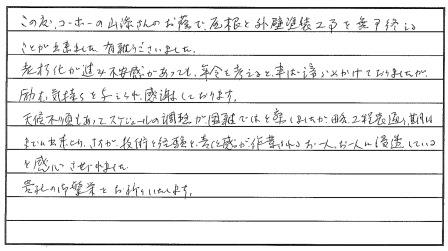 この度、コーホーの山添さんのお蔭で、屋根と外壁塗装工事を無事終る
ことが出来ました。有難うございました。
老朽化が進み不安感があっても、年令を考えると半ば諦めかけておりましたが、
励む気持ちを与えられ、感謝しております。
天候不順もあってスケジュールの調整が困難ではと察しましたが 工程表通り期日
までに出来上り、さすが技術と経験と責任感が作業される お一人、お一人に浸透している
と感心させられました。
貴社の御繁栄をお祈りいたします。